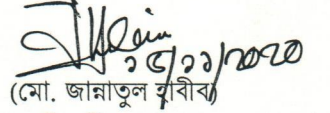 ২৫/১১/২০২০
(মো. জান্নাতুল হাবীব)